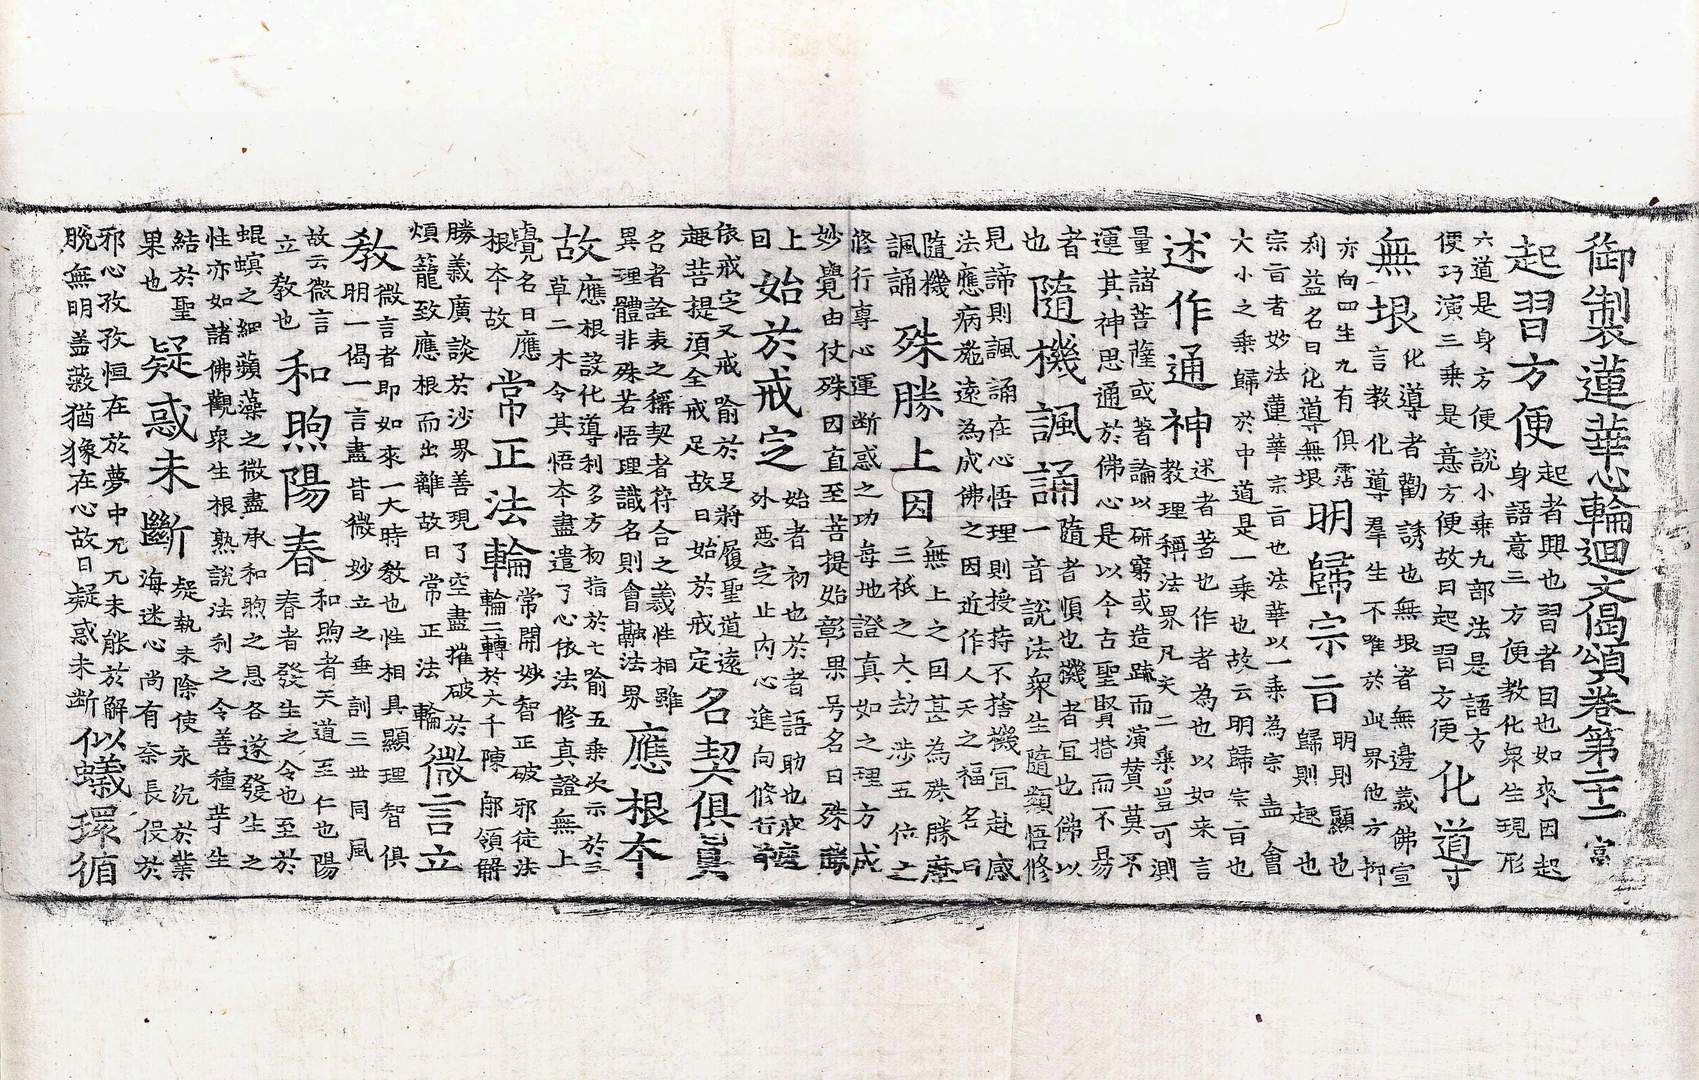 御製蓮華心輪迴文偈頌卷第二十二 富
起習方便 起者興也習者因也如來因起
身語意三方便教化衆生現形
六道是身方便說小乗九部法是語方
便巧演三乗是意方便故曰起習方便 化導
無垠 化導者勸誘也無垠者無邊義佛宣
言教化導羣生不唯於此界他方抑
亦向四生九有俱霑
利益名曰化導無垠 明歸宗㫖 明則顯也
歸則趣也
宗㫖者妙法蓮華宗㫖也法華以一乗為宗盖會
大小之乗歸於中道是一乗也故云明歸宗㫖也
述作通神 述者著也作者為也以如来言
教理稱法界凡夫二乗豈可測
量諸菩薩或著論以研窮或造䟽而演賛莫不
運其神思通於佛心是以今古聖賢揩而不易
者
也 隨機諷誦 隨者順也機者宜也佛以
一音說法衆生隨類悟修
見諦則諷誦在心悟理則授持不捨機宜赴感
法應病施遠為成佛之因近作人天之福名曰
隨機
諷誦 殊勝上因 無上之因甚為殊勝歷
三祇之大劫涉五位之
修行專心運断惑之功每地證真如之理方成
妙覺由仗殊因直至菩提始彰果号名曰殊勝
上
曰 始於戒定 始者初也於者語助也戒
外惡定止内心進向修行
依戒定又戒喻於足將履聖道遠
趣菩提須全戒足故曰始於戒定 名契俱真
名者詮表之稱契者符合之義性相雖
異理體非殊若悟理識名則會融法界 應根本
故 應根設化導利多方初指於七喻五乗次示於三
草二木令其悟本盡遣了心依法修真證無上
覺名曰應
根本故 常正法輪 常開妙智正破邪徒法
輪三轉於大千陳郍領解
勝義廣談於沙界善現了空盡摧破於
煩籠致應根而出離故曰常正法輪 微言立
教 微言者即如來一大時教也性相具顯理智俱
明一偈一言盡皆微妙立之垂訓三世同風
故云微言
立教也 和煦陽春 和煦者天道至仁也陽
春者發生之令也至於
蜫螟之細蘋藻之微盡承和煦之恩各遂發生之
性亦如諸佛觀衆生根熟說法利之令善種芽生
結於聖
果也 疑惑未斷 疑執未除使永沉於業
海迷心尚有奈長役於
邪心孜孜恒在於夢中兀兀未能於解
脫無明盖薉猶豫在心故曰疑惑未断 似蟻環循